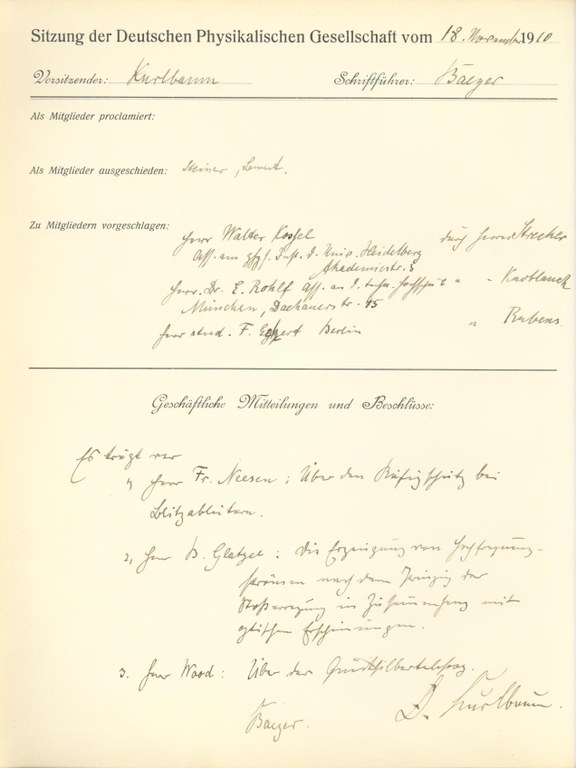 Sitzung der Deutschen Physikalischen Gesellschaft vom 18. November 1910
Vorsitzender: Kurlbaum Schriftführer: Baeyer
Als Mitglieder proclamiert:
Als Mitglieder ausgeschieden:
Zu Mitgliedern vorgeschlagen:
Herr Walter Kossel durch Herrn Strecker
Ass. am phys. Inst. d. Univ. Heidelberg
Akademiestr. 5
Herr Dr. E. Rohlf Ass. an d. techn. Hochschule " - Knoblauch
München, Dachauerstr. 45
Herr stud. F. Berlin " Rubens
Geschäftliche Mitteilungen und Beschlüsse:
Es trägt vor
1, Herr Fr. Neesen: Über den Käfigschutz bei
Blitzableitern.
2, Herr B. Glatzel: Die Erzeugung von Hochfrequenz-
strömen nach dem Prinzip der
Stoßerregung im Zusammenhang mit
optischen Erscheinungen.
3. Herr Wood: Über das Quecksilberteleskop.
Baeyer. Kurlbaum.